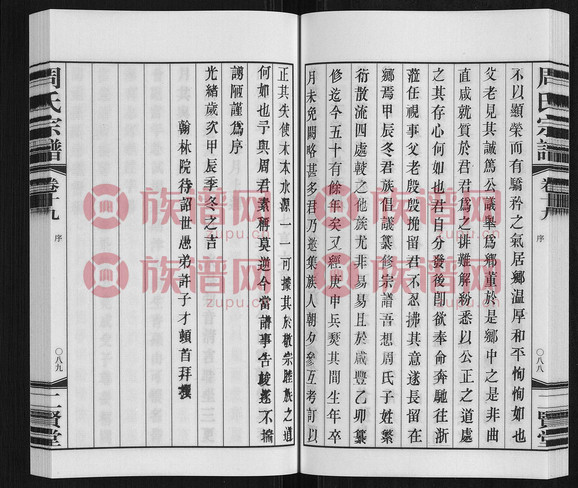 周氏宗譜
卷十九
序
〇八八
一賢堂
不以顯榮而有驕矜之氣居鄉溫厚和平恂恂如也
父老見其誠篤公議舉為鄉董於是鄉中之是非曲
直咸就質於君君為之排難解紛悉以公正之道處
之其存心何如也君自分發後即欲奉命奔馳往浙
蒞任視事父老殷殷挽留君不忍拂其意遂長留在
鄉焉甲辰冬君族倡議纂修宗譜吾想周氏子姓繁
衍散流四處較之他族尤非易易且於咸豐乙卯纂
修迄今五十有餘年矣又經庚申兵燹其間生年卒
月未免闕略甚多君乃邀集族人朝夕參互考訂以
正其失使木本水源一一可據其於敬宗睦族之道
何如也予與周君素稱莫逆今當譜事告竣遂不揣
謭陋謹為序
光緒歲次甲辰季冬之吉
翰林院待詔世愚弟許子才頓首拜撰
周氏宗譜
卷十九
序
〇八九
一賢堂
族譜网
zupu.cn
族譜网
zupu.cn
族譜网
zupu.cn
族譜网
zupu.cn